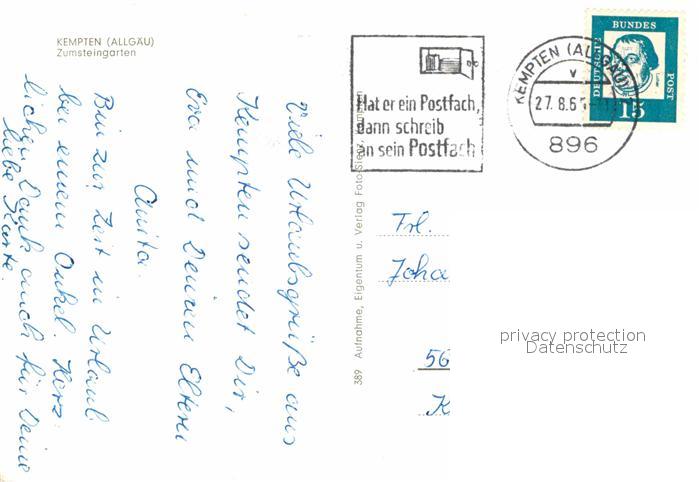 KEMPTEN (ALLGÄU)
Zumsteingarten
Viele Urlaubsgrüße aus
Kempten sendet Dir,
Eva und Deinen Eltern
Anita.
Bin zur Zeit in Urlaub
bei einem Onkel. Herz-
lichen Dank auch für Deine
liebe Karte.
389 Aufnahme, Eigentum u. Verlag Foto
Hat er ein Postfach,
dann schreib
an sein Postfach
KEMPTEN (ALLGÄU)
v
27.8.6
896
DEUTSCHE
BUNDES
POST
15
Frl.
Joha
56
K
privacy protection
Datenschutz